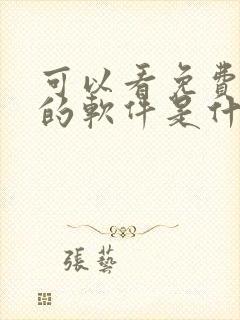 可以看免費
的軟件是什
張藝